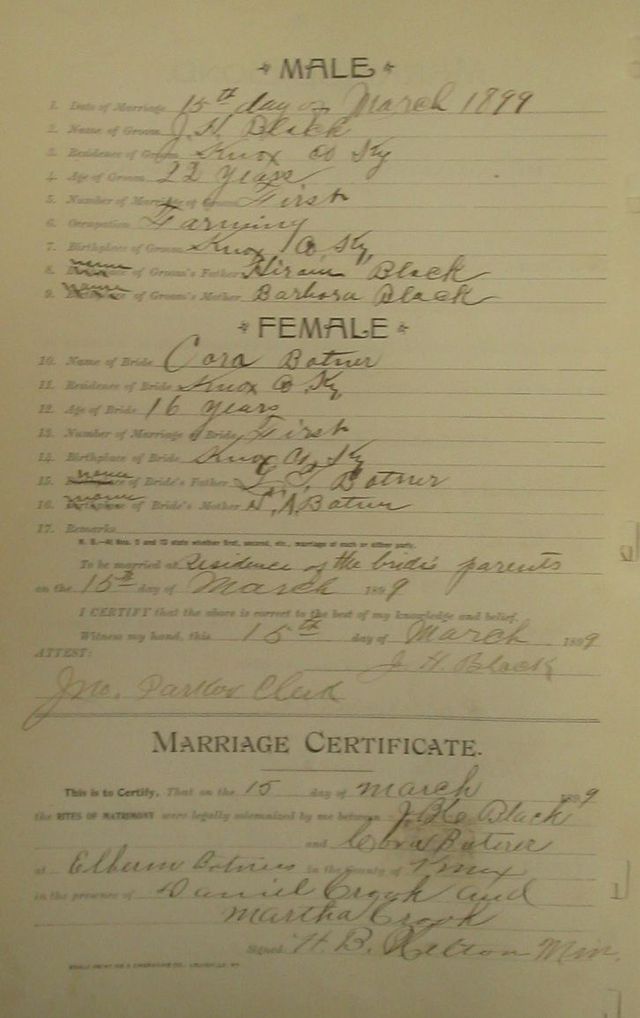 MALE
1. Date of Marriage 15th day of March 1899
2. Name of Groom J. H. Black
3. Residence of Groom Knox Co Ky
4. Age of Groom 22 years
5. Number of Marriage of Groom First
6. Occupation Farming
7. Birthplace of Groom Knox Co Ky
8. name of Groom's Father Hiram Black
9. name of Groom's Mother Barbora Black
FEMALE
10. Name of Bride Cora Botner
11. Residence of Bride Knox Co Ky
12. Age of Bride 16 years
13. Number of Marriage of Bride First
14. Birthplace of Bride Knox Co Ky
15. name of Bride's Father Botner
16. name of Bride's Mother Botner
17. Remarks
N. B.—At Nos. 5 and 13 state whether first, second, etc., marriage of each or either party.
To be married at Residence of the bride's parents
on the 15th day of March 1899
I CERTIFY that the above is correct to the best of my knowledge and belief.
Witness my hand, this 15th day of March 1899
ATTEST: J H Black
Jno. Parker Clerk
MARRIAGE CERTIFICATE.
This is to Certify, That on the 15 day of march 1899
the RITES OF MATRIMONY were legally solemnized by me between Black
and Cora Botner
at Botners in the County of Knox
in the presence of Daniel Crook and
Martha Crook
Signed H. B. Min.